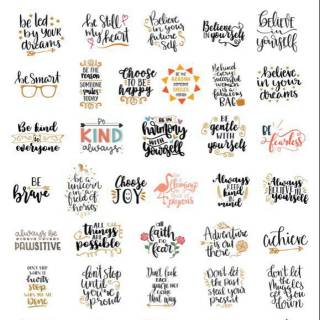 be led
by your
dreams
be still
my heart
Believe
in your
future
self
Believe
in yourself
believe
in
yourself
be Smart
BE
THE REASON
SOMEONE
SMILES
TODAY
CHOOSE
TO BE
happy
BE THE REASON
SOMEONE
SMILES TODAY
Behind
every
successful
woman
is a
fabulous
BAG
believe
in your
dreams
Be kind
to
everyone
Be
KIND
always.
BE IN
harmony
WITH
yourself
BE
gentle
WITH
yourself
BE
fearless
BE
BRAVE
be a
unicorn
in a
field of
horses
Choose
JOY
Always
KEEP IN
MIND
Always
BELIEVE IN
YOURSELF
always be
PAWSITIVE
ALL
things
ARE
possible
faith
no
fear
Adventure
is out
there
achieve
DON'T STOP
WHEN IT
hurts
STOP
WHEN YOU ARE
DONE
don't stop
until
you're
proud
Don't look
back
you're not
going
that way
Don't let
the past
steal your
present
don't let
the
muggles
get you
down